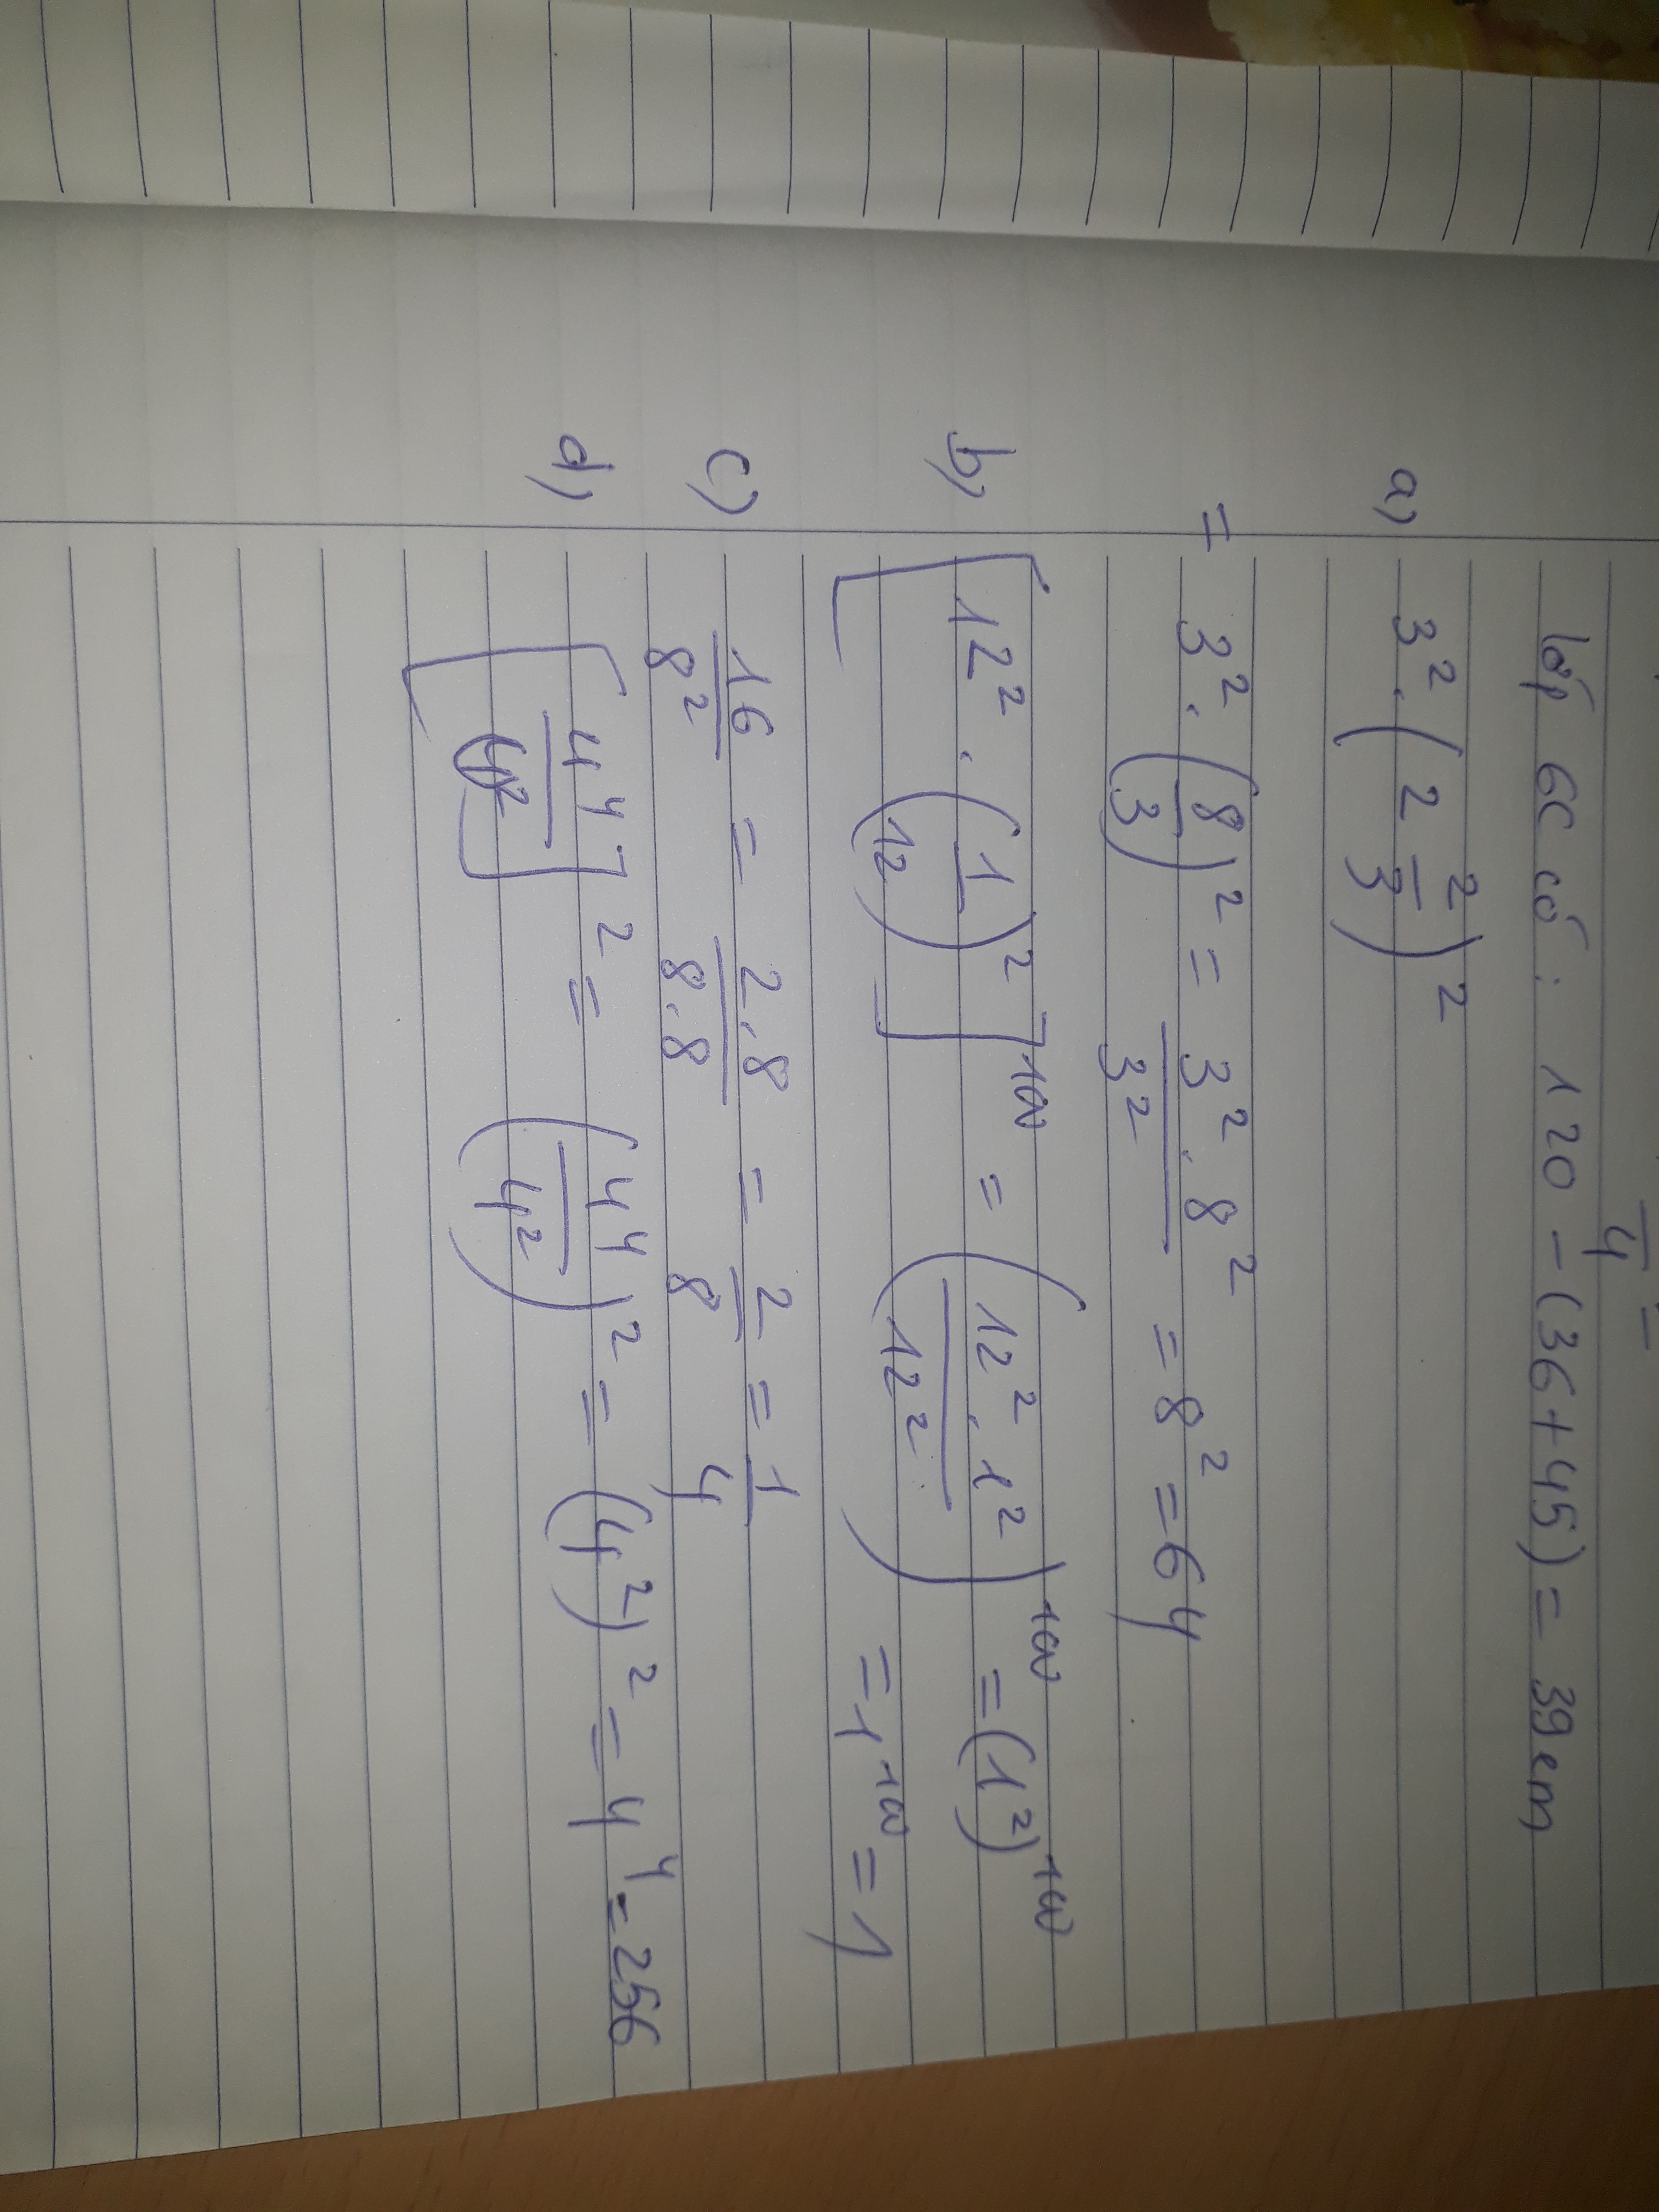 4
lớp 6C có : 120 - (36+45) = 39 em
a) 3² . (2 2/3)²
= 3² . (8/3)² = 3² . 8² / 3² = 8² = 64
b) [12² . (1/12)²]¹⁰⁰ = (12² . 1² / 12²)¹⁰⁰ = (1²)¹⁰⁰
= 1¹⁰⁰ = 1
c) 16/8² = 2.8/8.8 = 2/8 = 1/4
d) [4⁴/4²]² = (4⁴/4²)² = (4²)² = 4⁴ = 256